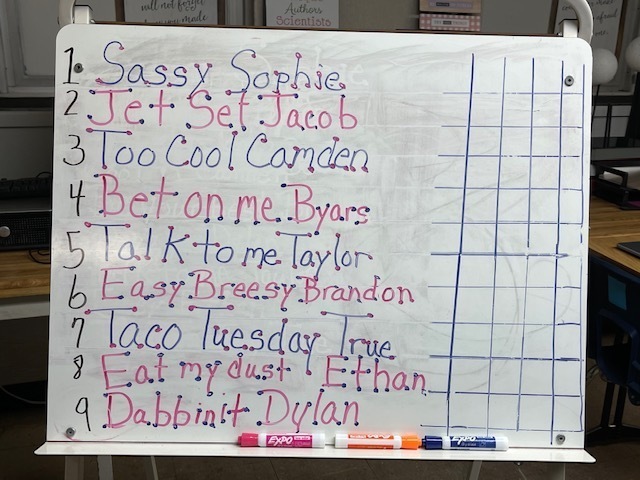 will not forget
you made
Authors
Scientists
1 Sassy Sophie
2 Jet Set Jacob
3 Too Cool Camden
4 Bet on me Byars
5 Talk to me Taylor
6 Easy Breesy Brandon
7 Taco Tuesday True
8 Eat my dust Ethan
9 Dabbin it Dylan
EXPO
EXPO